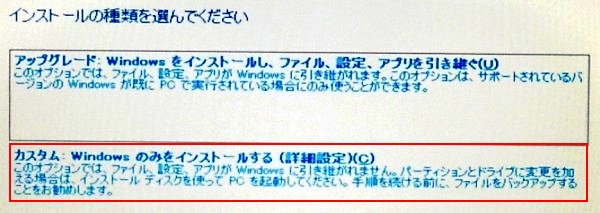 インストールの種類を選んでください
アップグレード: Windows をインストールし、ファイル、設定、アプリを引き継ぐ(U)
このオプションでは、ファイル、設定、アプリが Windows に引き継がれます。このオプションは、サポートされているバ
ージョンの Windows が既に PC で実行されている場合にのみ使うことができます。
カスタム: Windows のみをインストールする (詳細設定)(C)
このオプションでは、ファイル、設定、アプリが Windows に引き継がれません。パーティションとドライブに変更を加
える場合は、インストール ディスクを使って PC を起動してください。手順を続ける前に、ファイルをバックアップする
ことをお勧めします。